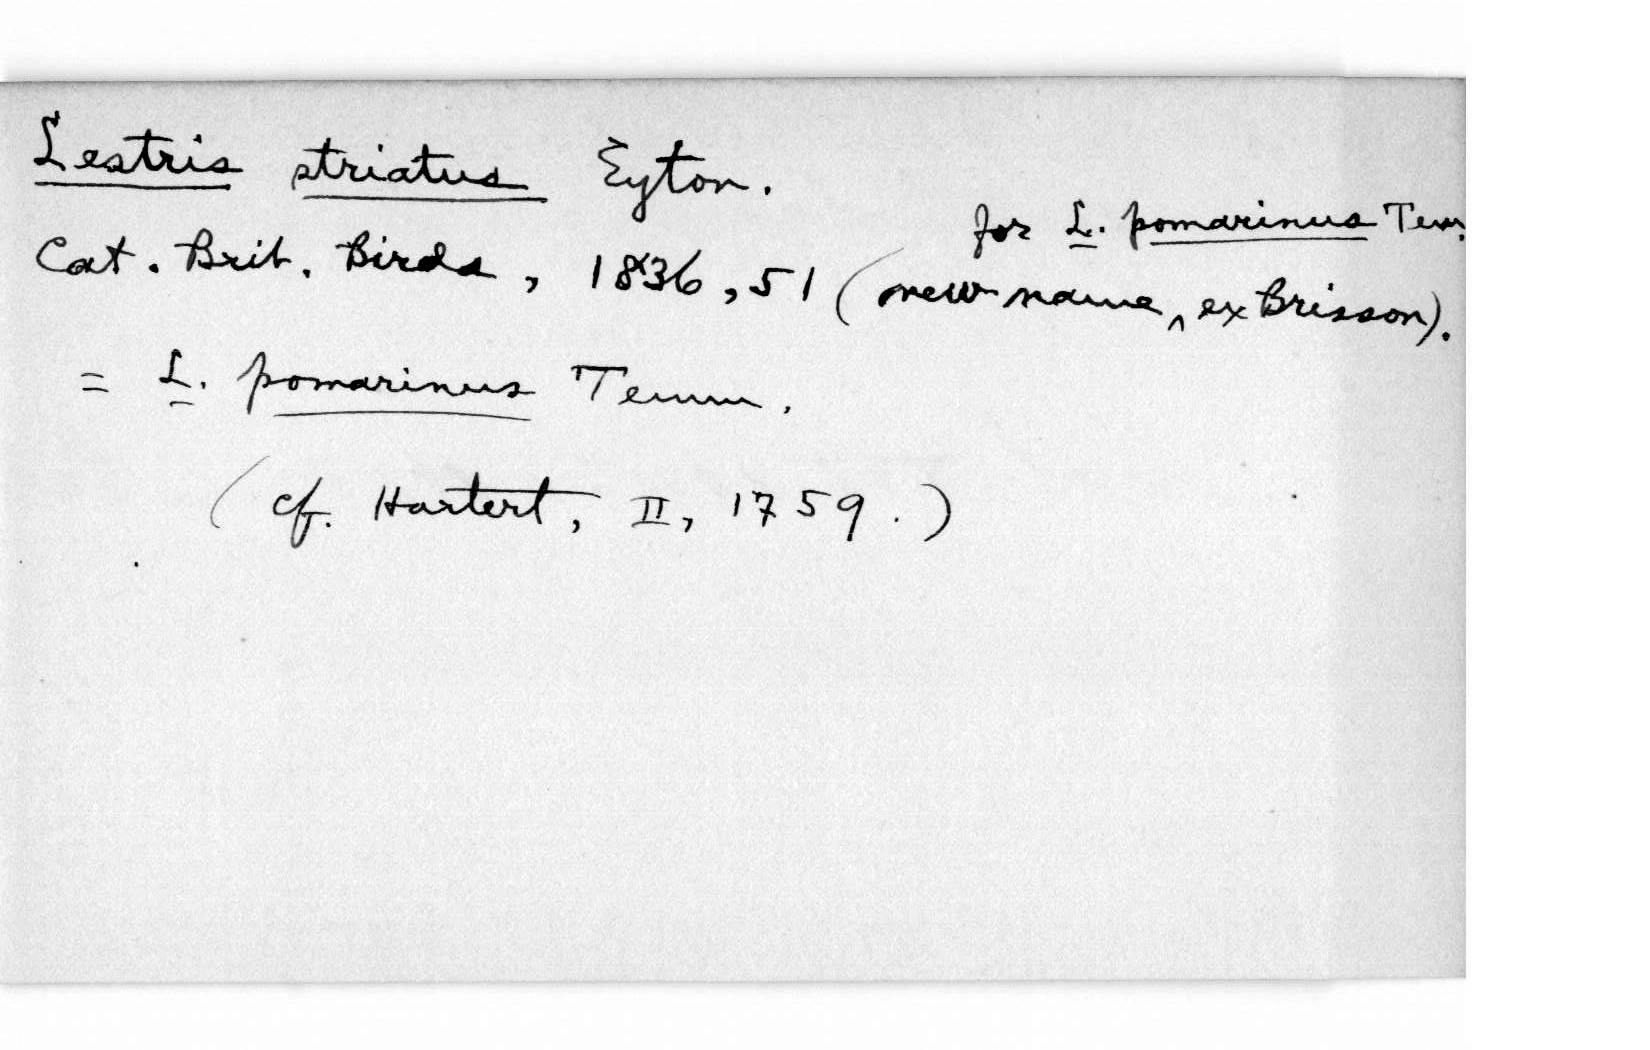 Lestris striatus Eyton.
for L. pomarinus Tem.
Cat. Brit. Birds, 1836, 51 (new name ^ ex Brisson).
= L. pomarinus Temm.
(cf. Hartert, II, 1759.)